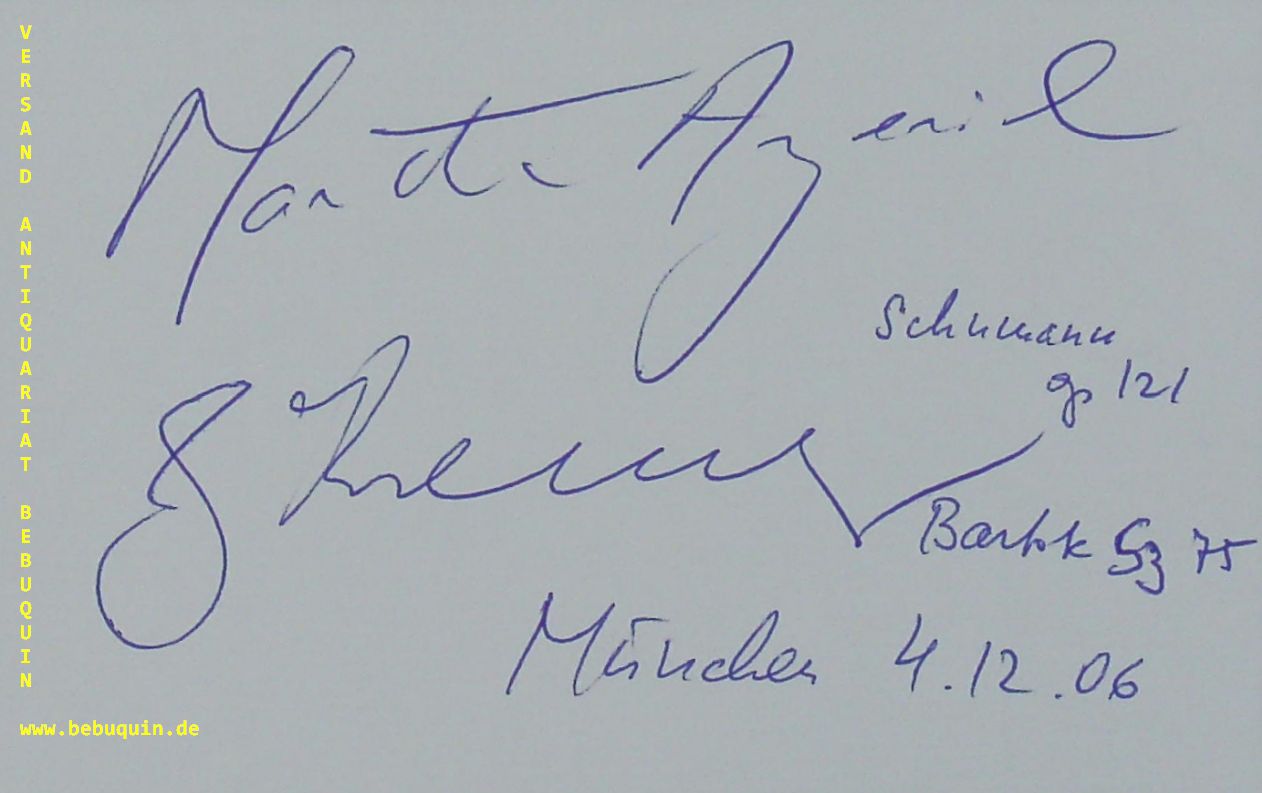 VERSAND ANTIQUARIAT BEBUQUIN
Martha Argerich
G Kremer
Schumann
op 121
Bartók Sz 75
München 4.12.06
www.bebuquin.de